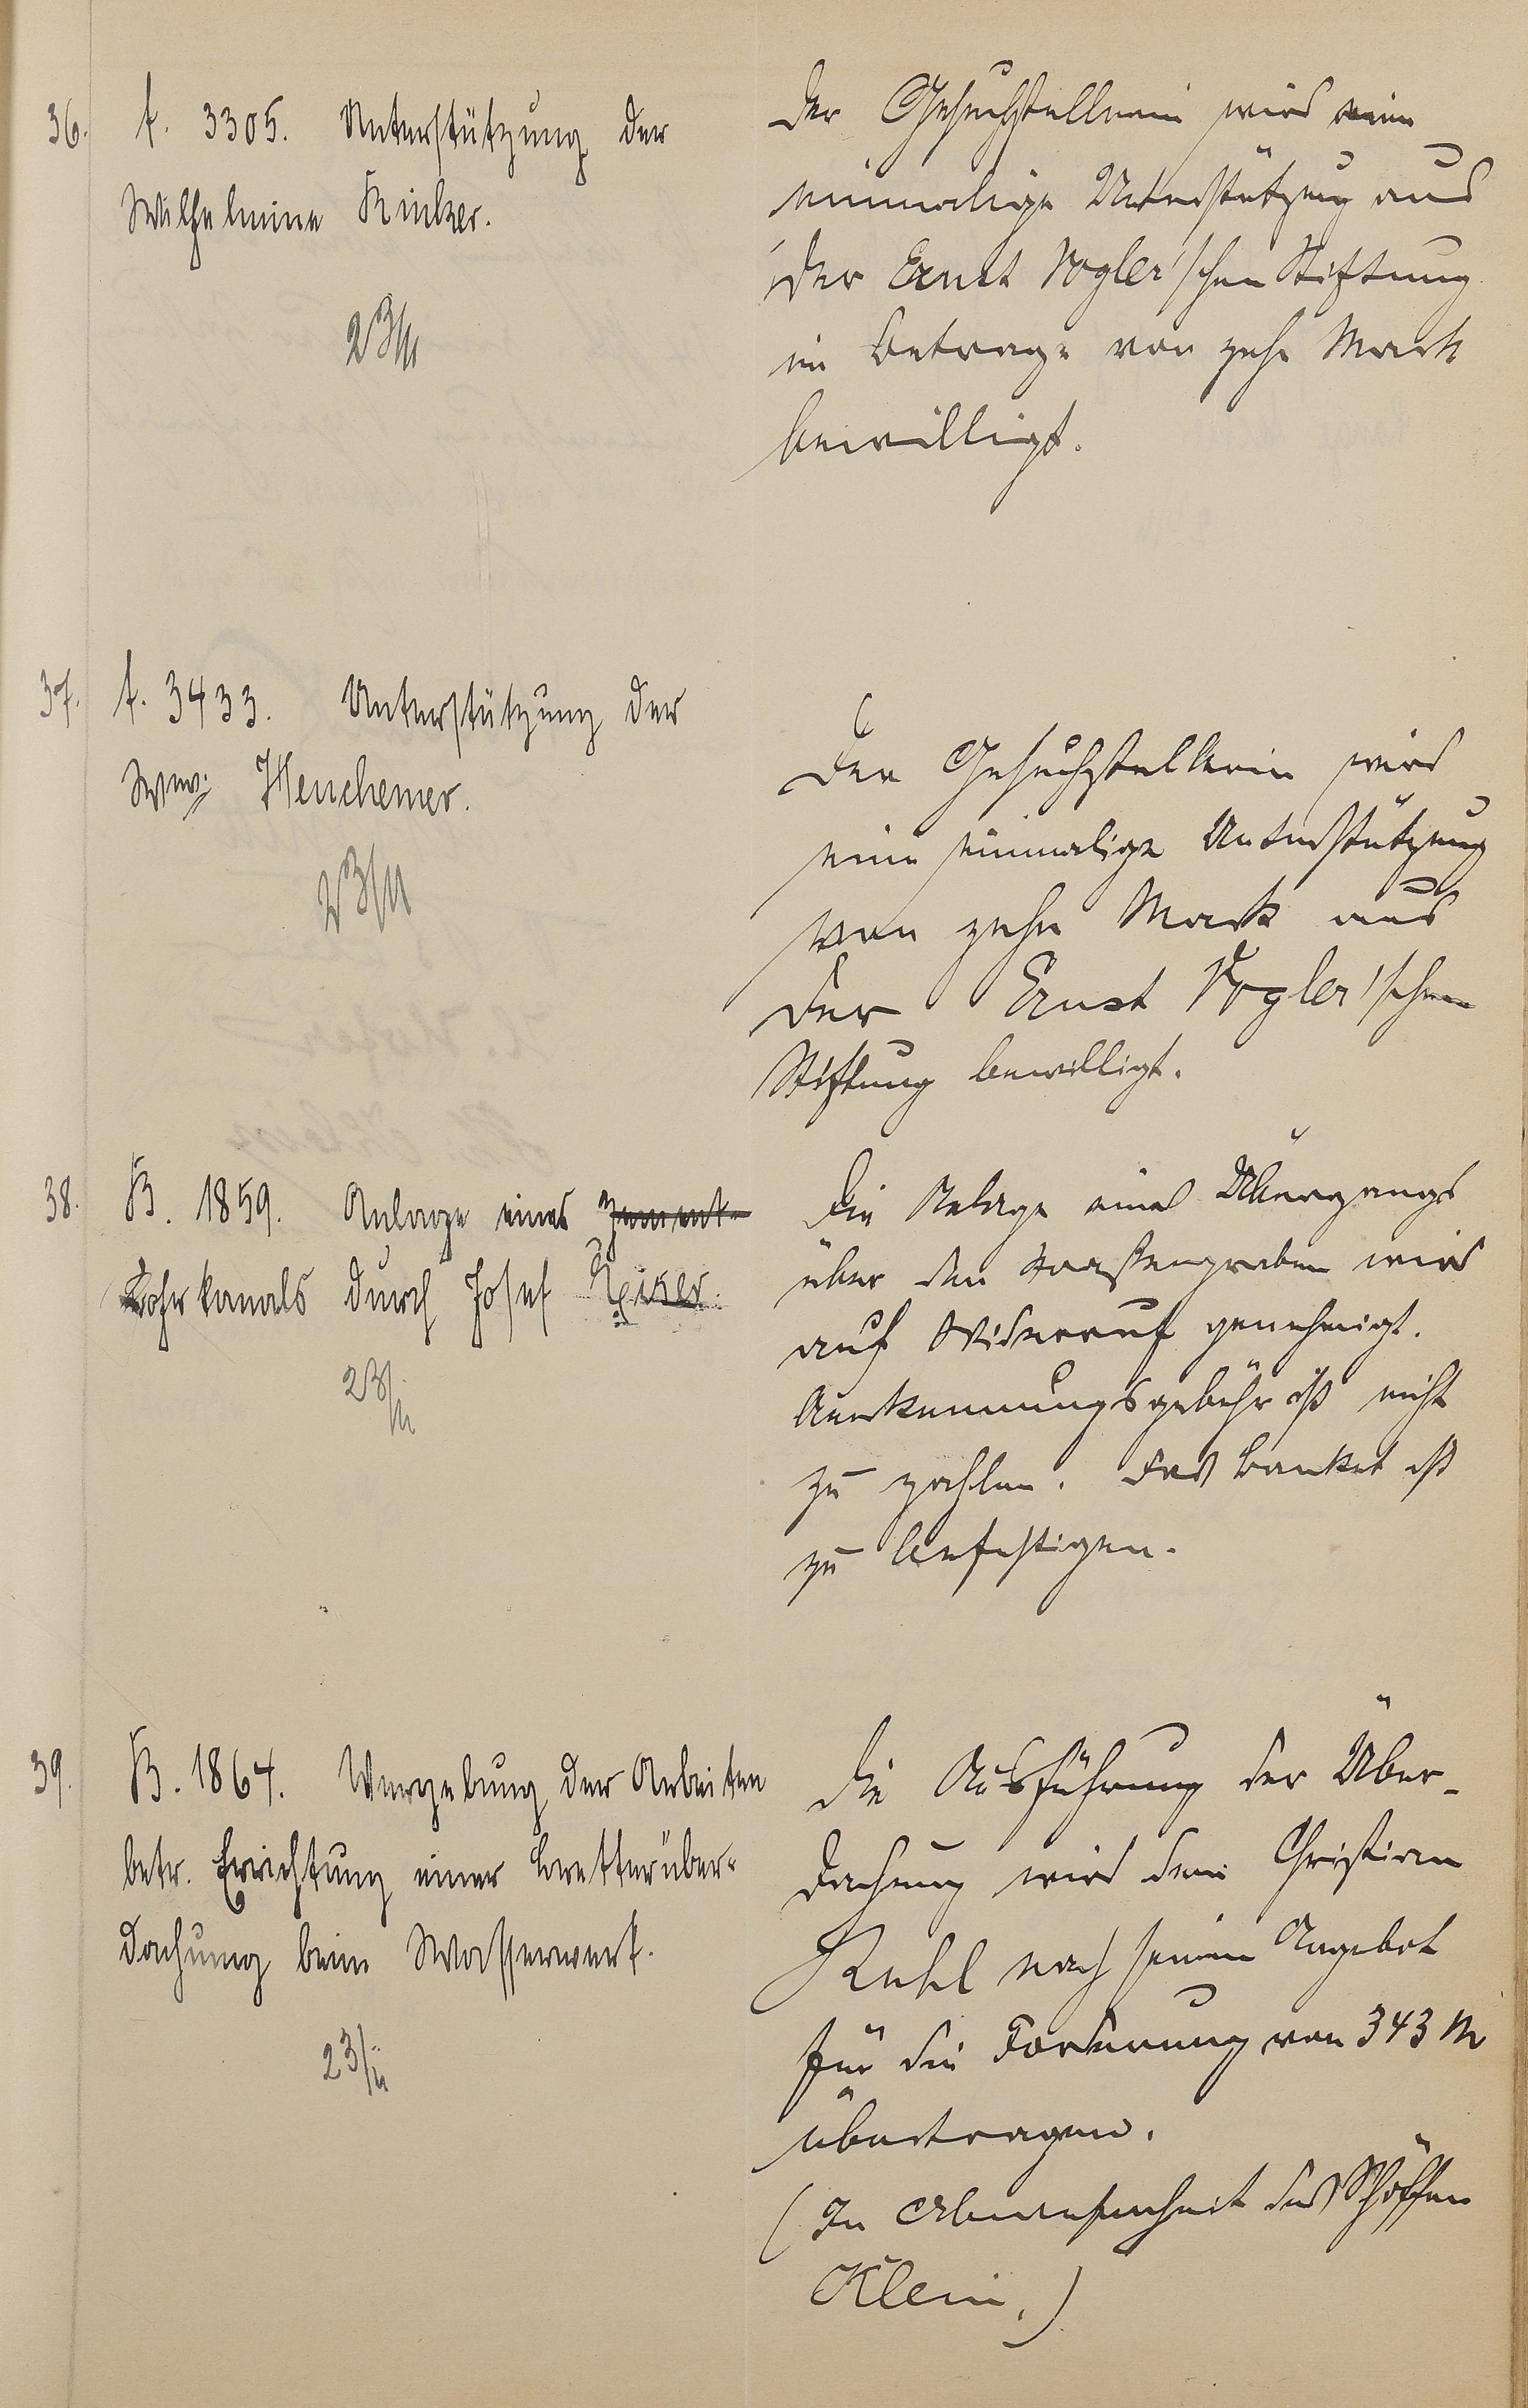 36.
f. 3305. Unterstützung der
Wilhelmine Rinker.
23/11
Der Gesuchstellerin wird eine
einmalige Unterstützung aus
der Ernst Vogler'schen Stiftung
im Betrage von zehn Mark
bewilligt.
37.
f. 3433. Unterstützung der
Wwe. Henchemer.
23/11
Der Gesuchstellerin wird
eine einmalige Unterstützung
von zehn Mark aus
der Ernst Vogler'schen
Stiftung bewilligt.
38.
B. 1859. Anlage eines Zement-
Rohrkanals durch Josef
23/11
Die Anlage eines Übergangs
über den Straßengraben wird
auf Widerruf genehmigt.
Anerkennungsgebühr ist nicht
zu zahlen. Das Banket ist
zu befestigen.
39.
B. 1864. Vergebung der Arbeiten
betr. Errichtung einer Bretterüber-
dachung beim Wasserwerk.
23/11
Die Ausführung der Über-
dachung wird dem Christian
Kuhl nach seinem Angebot
für die Forderung von 343 M
übertragen.
(In Abwesenheit des Schöffen
Klein.)